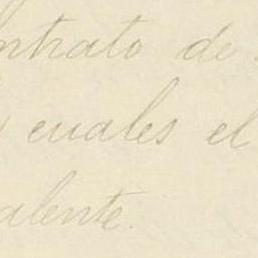 ntrato de
cuales el
alente.